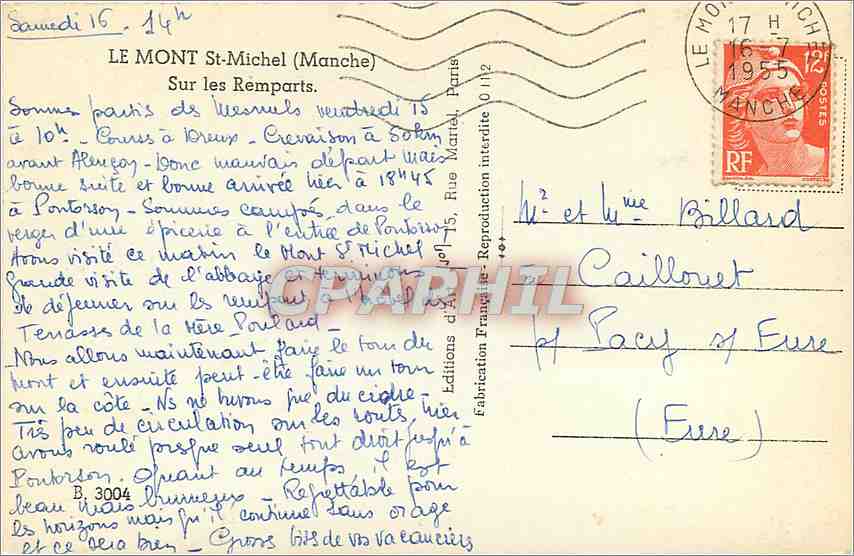 Samedi 16 . 14h
LE MONT St-Michel (Manche)
Sur les Remparts.
Sommes partis des Mesnuls vendredi 15
à 10h - Courses à Dreux - Crevaison à 50km
avant Alençon - Donc mauvais départ mais
bonne suite et bonne arrivée hier à 18h45
à Pontorson - Sommes campés dans le
verger d'une épicerie à l'entrée de Pontorson
Avons visité ce matin le Mont St Michel
Grande visite de l'abbaye et terminons
de déjeuner sur les remparts à
Terrasses de la Mère Poulard -
Nous allons maintenant faire le tour du
Mont et ensuite peut-être faire un tour
sur la côte - Ns ne buvons que du cidre -
Très peu de circulation sur les routes, hier
avons roulé presque seul tout droit jusqu'à
Pontorson. Quant au temps il est
beau mais brumeux - Regrettable pour
les horizons mais qu'il continue sans orage
et ce sera bien - Gross bises de vos vacanciers
B. 3004
Editions d'Art 15, Rue Martel, Paris
Fabrication Française - Reproduction interdite 0112
CPARPHIL
LE MONT MICHEL
17 H
16 - 7
1955
MANCHE
12F
POSTES
RF
Mr et Mme Billard
à Caillouet
p/ Pacy s/ Eure
(Eure)